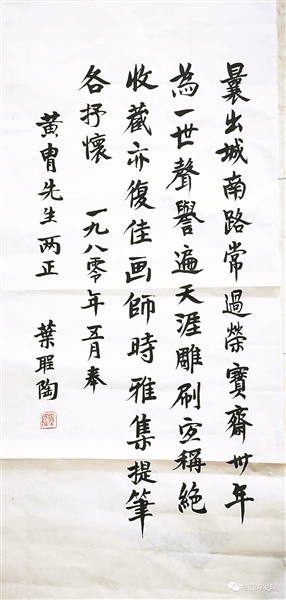 曩出城南路常過榮寶齋卅年
為一世聲譽遍天涯雕刷宜稱絶
收藏亦復佳画師時雅集提筆
各抒懷 一九八零年五月奉
黄胄先生两正
葉聖陶